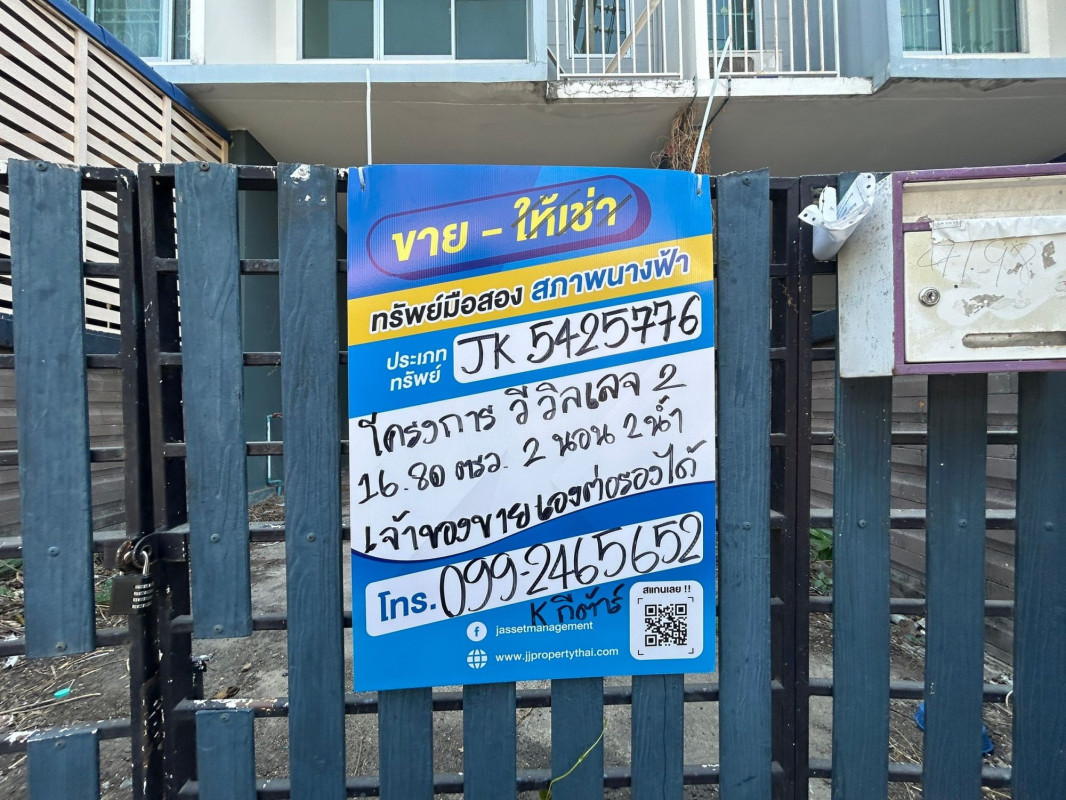 ขาย - ให้เช่า
ทรัพย์มือสอง สภาพนางฟ้า
ประเภท
ทรัพย์
JK 5425776
โครงการ วี วิลเลจ 2
16.80 ตรว. 2 นอน 2 น้ำ
เจ้าของขายเองต่อรองได้
โทร. 099-2465652
K กีต้าร์
สแกนเลย !!
jassetmanagement
www.jjpropertythai.com